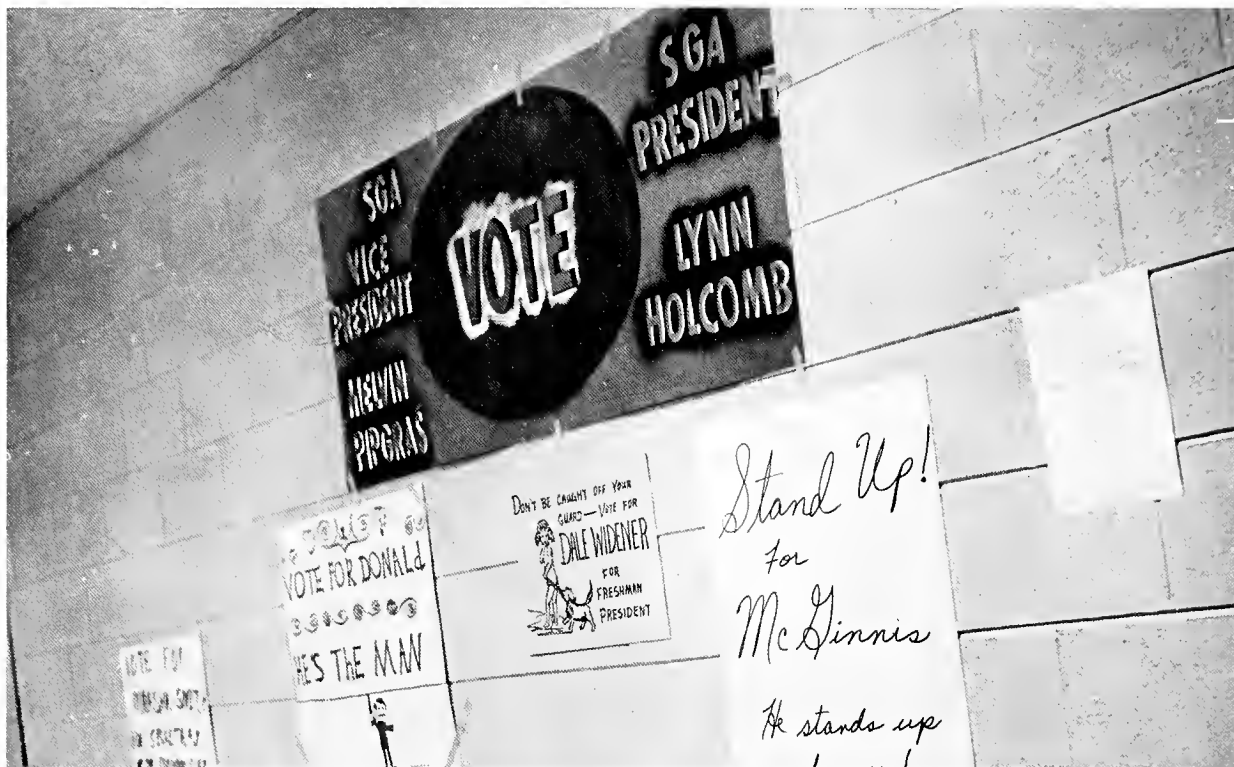 SGA
VICE
PRESIDENT
MELVIN
PIPGRAS
VOTE
SGA
PRESIDENT
LYNN
HOLCOMB
VOTE FOR DONALD
HE'S THE MAN
DON'T BE CAUGHT OFF YOUR
GUARD—VOTE FOR
DALE WIDENER
FOR
FRESHMAN
PRESIDENT
Stand Up!
For
McGinnis
He stands up
VOTE FOR